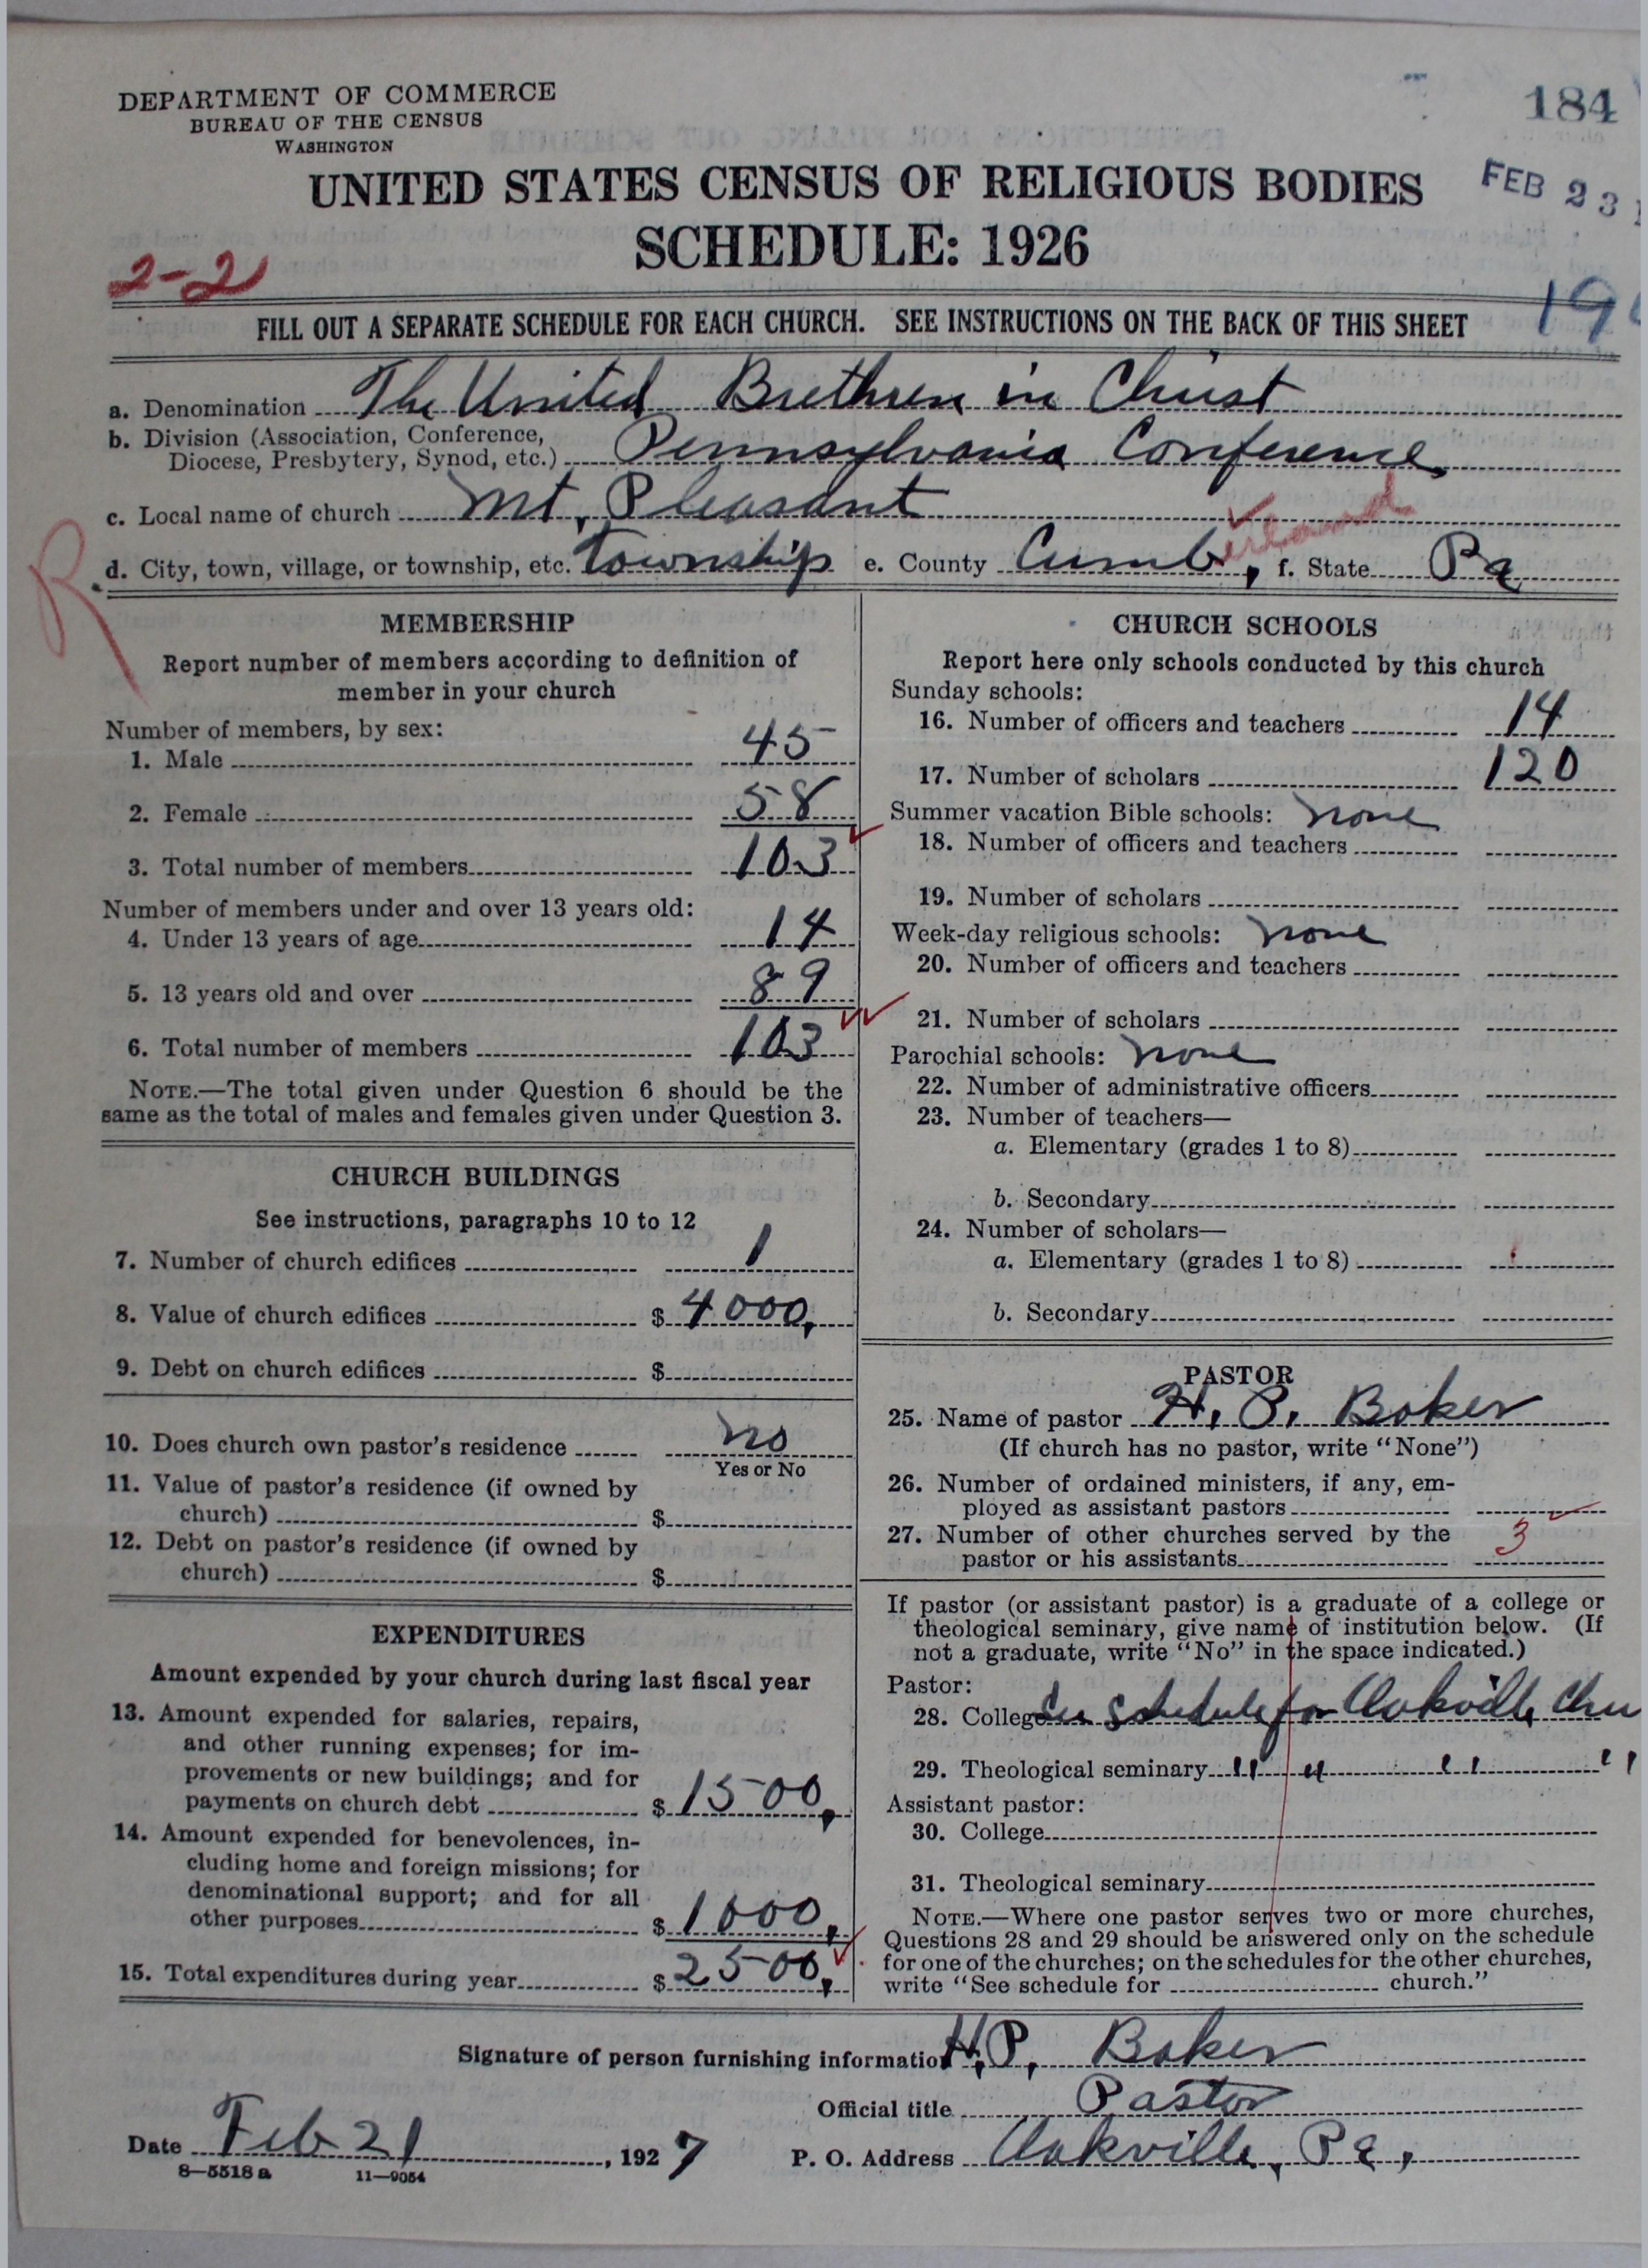 184
DEPARTMENT OF COMMERCE
BUREAU OF THE CENSUS
WASHINGTON
UNITED STATES CENSUS OF RELIGIOUS BODIES
FEB 23
SCHEDULE: 1926
2-2
FILL OUT A SEPARATE SCHEDULE FOR EACH CHURCH. SEE INSTRUCTIONS ON THE BACK OF THIS SHEET
19
a. Denomination The United Brethren in Christ
b. Division (Association, Conference,
Diocese, Presbytery, Synod, etc.) Pennsylvania Conference
c. Local name of church Mt. Pleasant
R
d. City, town, village, or township, etc. township e. County Cumberland, f. State Pa
MEMBERSHIP
Report number of members according to definition of
member in your church
Number of members, by sex:
1. Male 45
2. Female 58
3. Total number of members 103
Number of members under and over 13 years old:
4. Under 13 years of age 14
5. 13 years old and over 89
6. Total number of members 103
NOTE.—The total given under Question 6 should be the
same as the total of males and females given under Question 3.
CHURCH BUILDINGS
See instructions, paragraphs 10 to 12
7. Number of church edifices 1
8. Value of church edifices $ 4000.
9. Debt on church edifices $
10. Does church own pastor's residence no
Yes or No
11. Value of pastor's residence (if owned by
church) $
12. Debt on pastor's residence (if owned by
church) $
EXPENDITURES
Amount expended by your church during last fiscal year
13. Amount expended for salaries, repairs,
and other running expenses; for im-
provements or new buildings; and for
payments on church debt $ 1500.
14. Amount expended for benevolences, in-
cluding home and foreign missions; for
denominational support; and for all
other purposes $ 1000.
15. Total expenditures during year $ 2500.
CHURCH SCHOOLS
Report here only schools conducted by this church
Sunday schools:
16. Number of officers and teachers 14
17. Number of scholars 120
Summer vacation Bible schools: none
18. Number of officers and teachers
19. Number of scholars
Week-day religious schools: none
20. Number of officers and teachers
21. Number of scholars
Parochial schools: none
22. Number of administrative officers
23. Number of teachers—
a. Elementary (grades 1 to 8)
b. Secondary
24. Number of scholars—
a. Elementary (grades 1 to 8)
b. Secondary
PASTOR
25. Name of pastor H. P. Baker
(If church has no pastor, write "None")
26. Number of ordained ministers, if any, em-
ployed as assistant pastors
27. Number of other churches served by the
pastor or his assistants 3
If pastor (or assistant pastor) is a graduate of a college or
theological seminary, give name of institution below. (If
not a graduate, write "No" in the space indicated.)
Pastor:
28. College See Schedule for Oakville Chu
29. Theological seminary " " " "
Assistant pastor:
30. College
31. Theological seminary
NOTE.—Where one pastor serves two or more churches,
Questions 28 and 29 should be answered only on the schedule
for one of the churches; on the schedules for the other churches,
write "See schedule for church."
Signature of person furnishing information H. P. Baker
Official title Pastor
Date Feb 21, 1927 P. O. Address Oakville, Pa.
8—5518 a 11—9054